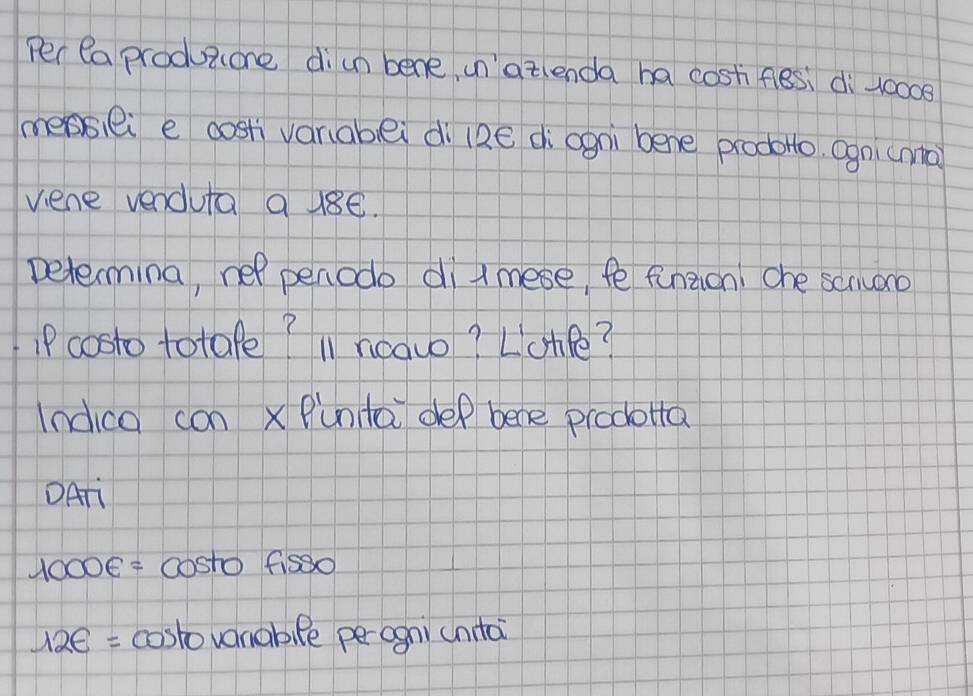 Per la produzione di un bene, un'azienda ha costi fissi di 1000€
mensili e costi variabili di 12€ di ogni bene prodotto. Ogni unità
viene venduta a 18€.
Determina, nel periodo di 1 mese, le funzioni che scrivono
il costo totale? Il ricavo? L'utile?
Indica con x l'unità del bene prodotta
DATi
1000€ = costo fisso
12€ = costo variabile per ogni unità